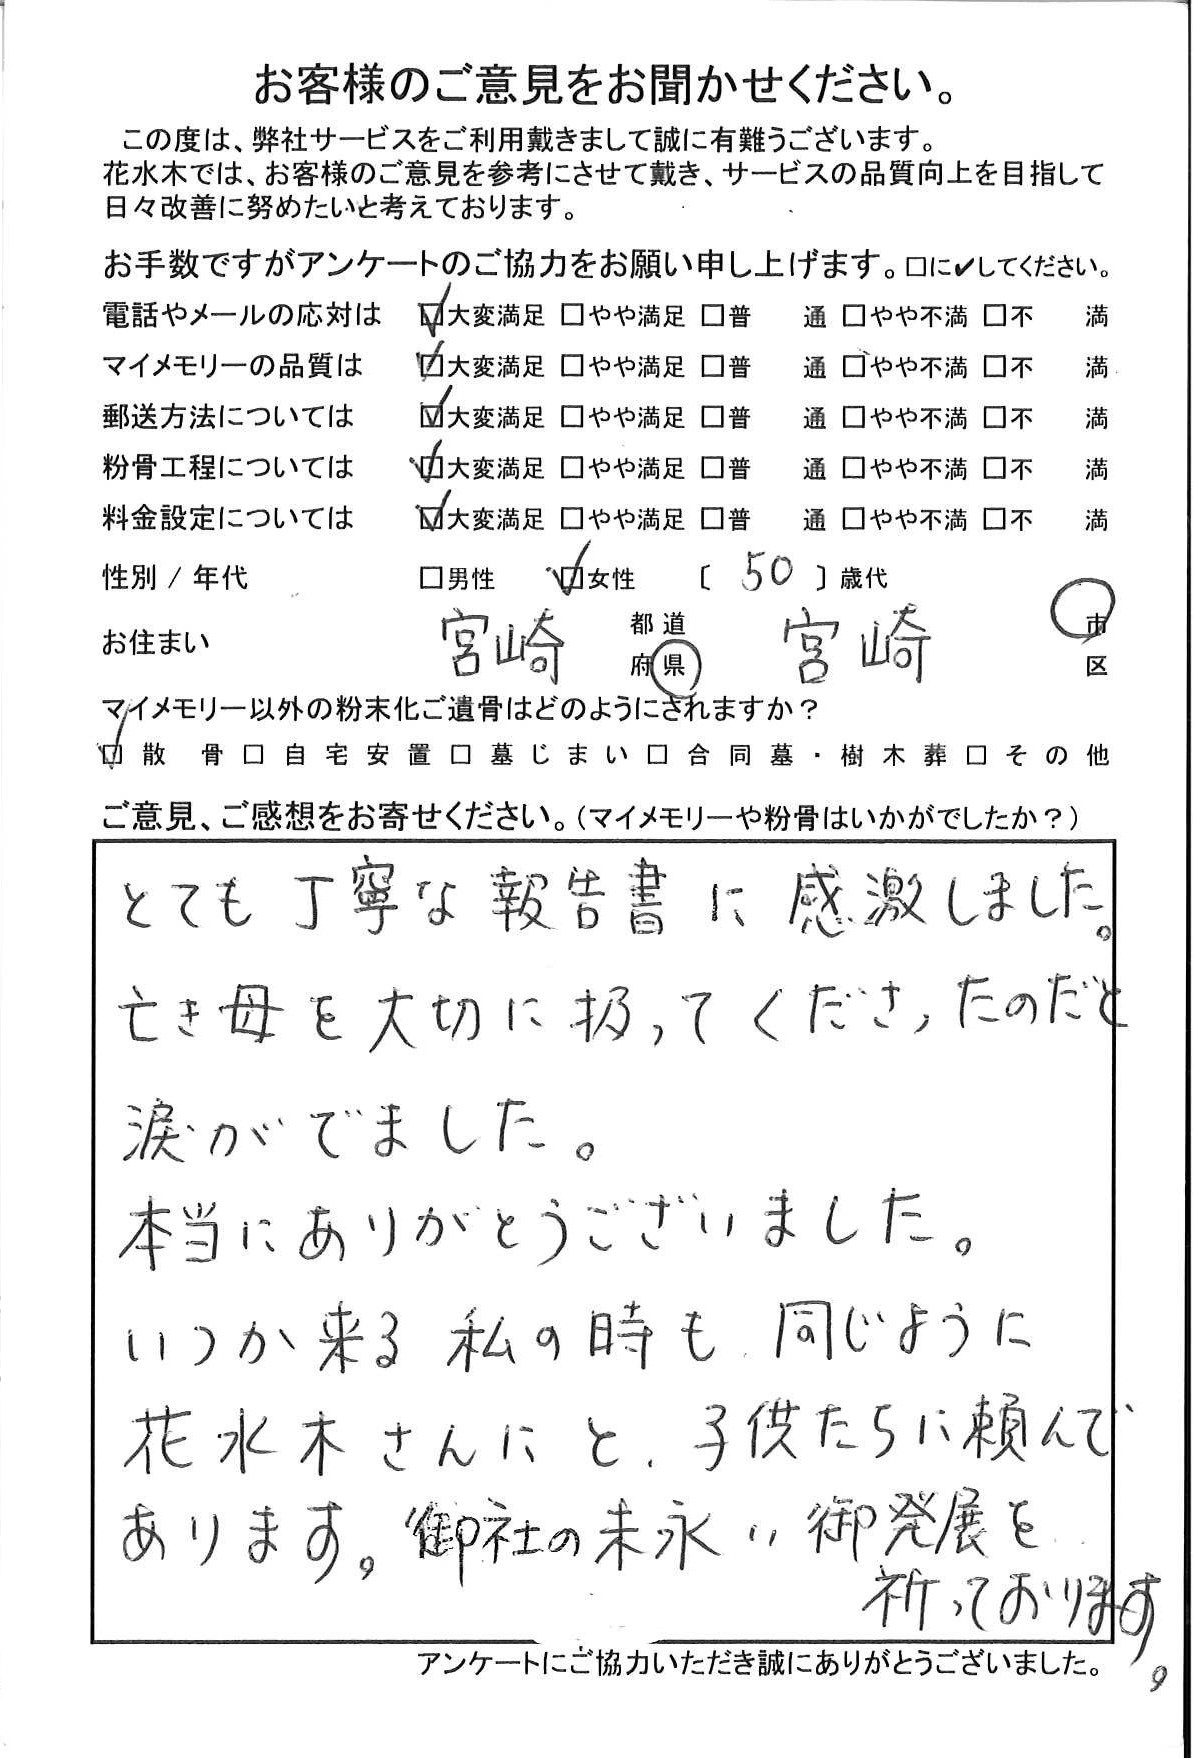 お客様のご意見をお聞かせください。
この度は、弊社サービスをご利用戴きまして誠に有難うございます。
花水木では、お客様のご意見を参考にさせて戴き、サービスの品質向上を目指して
日々改善に努めたいと考えております。
お手数ですがアンケートのご協力をお願い申し上げます。□に✔してください。
電話やメールの応対は ☑大変満足 □やや満足 □普 通 □やや不満 □不 満
マイメモリーの品質は ☑大変満足 □やや満足 □普 通 □やや不満 □不 満
郵送方法については ☑大変満足 □やや満足 □普 通 □やや不満 □不 満
粉骨工程については ☑大変満足 □やや満足 □普 通 □やや不満 □不 満
料金設定については ☑大変満足 □やや満足 □普 通 □やや不満 □不 満
性別 / 年代 □男性 ☑女性 〔 50 〕歳代
お住まい 宮崎 都道府県 宮崎 市区
マイメモリー以外の粉末化ご遺骨はどのようにされますか？
☑散 骨□自宅安置□墓じまい□合同墓・樹木葬□その他
ご意見、ご感想をお寄せください。（マイメモリーや粉骨はいかがでしたか？）
とても丁寧な報告書に感激しました。
亡き母を大切に扱ってくださったのだと
涙がでました。
本当にありがとうございました。
いつか来る私の時も同じように
花水木さんにと、子供たちに頼んで
あります。御社の末永い御発展を
祈っております。
アンケートにご協力いただき誠にありがとうございました。